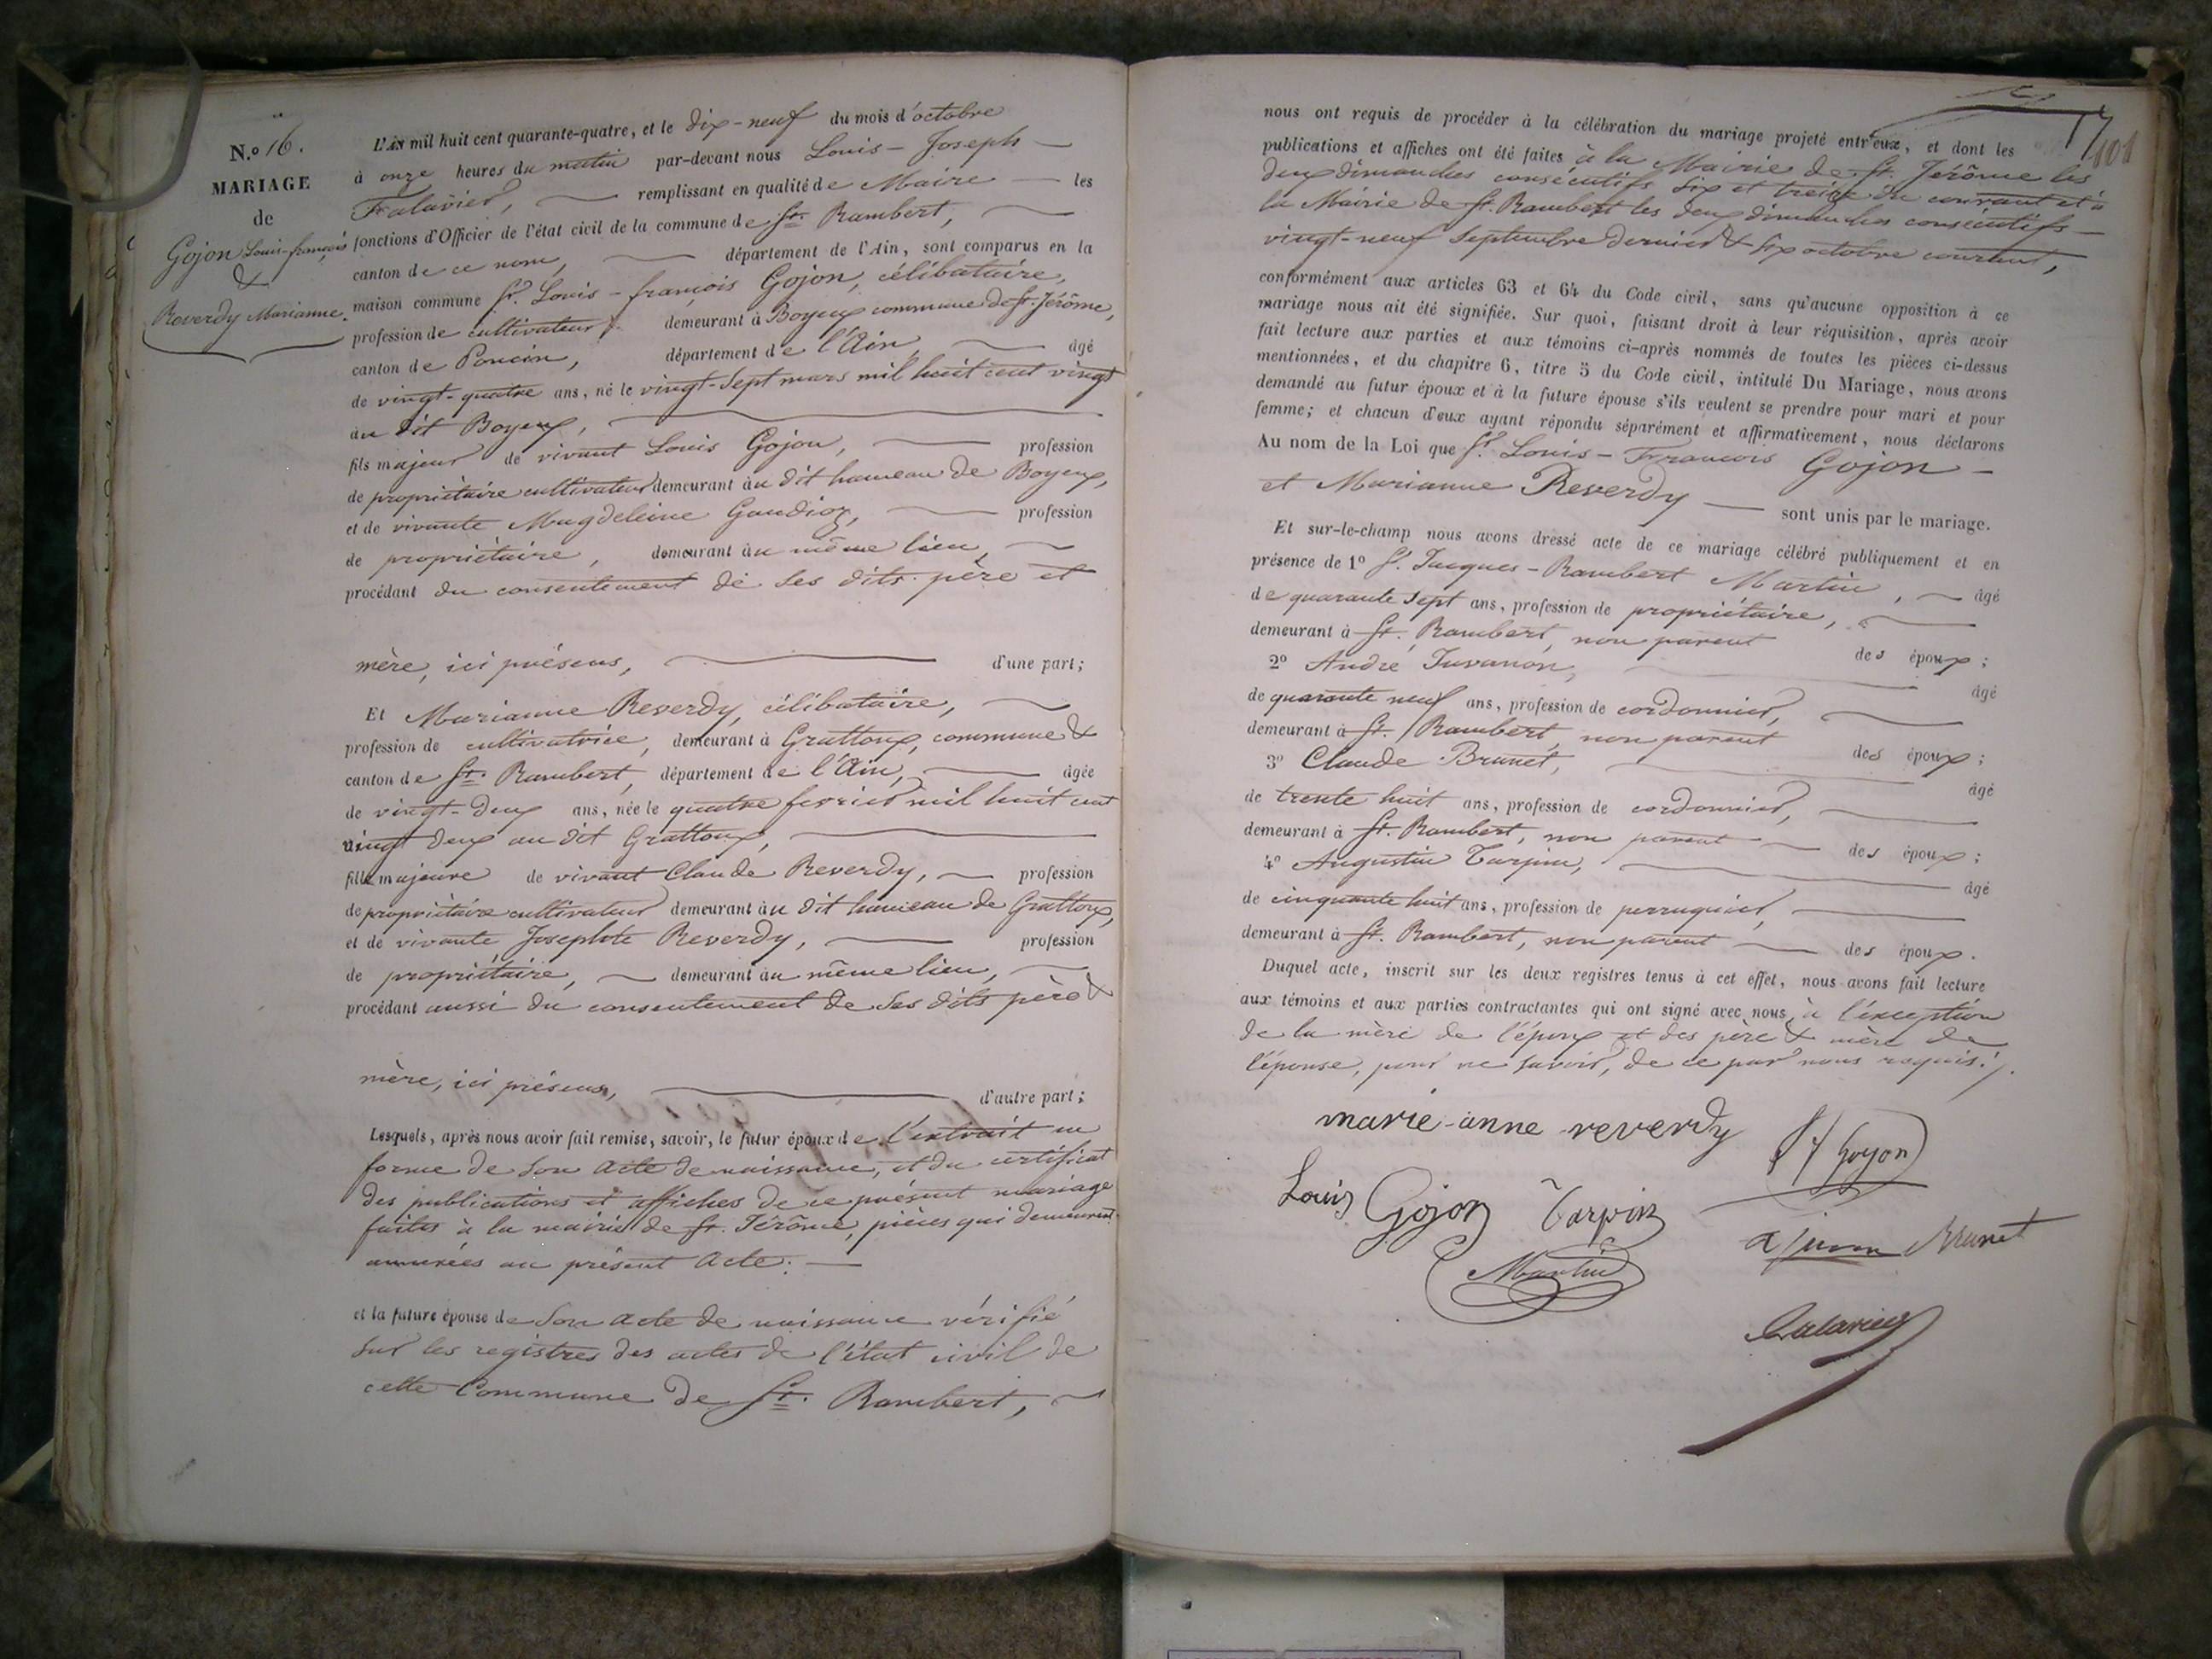 N.o 16.
MARIAGE
de
Gojon Louis-françois
&
Reverdy Marianne.
L'An mil huit cent quarante-quatre, et le dix-neuf du mois d'octobre
à onze heures du matin par-devant nous Louis-Joseph
Falavier, remplissant en qualité de Maire les
fonctions d'Officier de l'état civil de la commune de St. Rambert,
canton de ce nom, département de l'Ain, sont comparus en la
maison commune Sr. Louis-françois Gojon, célibataire,
profession de cultivateur, demeurant à Boyeux commune de St. Jérôme,
canton de Poncin, département de l'Ain, âgé
de vingt-quatre ans, né le vingt-sept mars mil huit cent vingt
au dit Boyeux,
fils majeur de vivant Louis Gojon, profession
de propriétaire cultivateur demeurant au dit hameau de Boyeux,
et de vivante Magdeleine Gaudioz, profession
de propriétaire, demeurant au même lieu,
procédant du consentement de ses dits père et
mère, ici présens, d'une part;
Et Marianne Reverdy, célibataire,
profession de cultivatrice, demeurant à Grattoux, commune &
canton de St. Rambert, département de l'Ain, âgée
de vingt-deux ans, née le quatre fevrier mil huit cent
vingt deux au dit Grattoux,
fille majeure de vivant Claude Reverdy, profession
de propriétaire cultivateur demeurant au dit hameau de Grattoux,
et de vivante Josephte Reverdy, profession
de propriétaire, demeurant au même lieu,
procédant aussi du consentement de ses dits père &
mère, ici présens, d'autre part;
Lesquels, après nous avoir fait remise, savoir, le futur époux de l'extrait en
forme de son acte de naissance, et du certificat
des publications et affiches de ce présent mariage
faites à la mairie de St. Jérôme, pièces qui demeurent
annexées au présent acte.
et la future épouse de son acte de naissance vérifié
sur les registres des actes de l'état civil de
cette Commune de St. Rambert,
101
nous ont requis de procéder à la célébration du mariage projeté entr'eux, et dont les
publications et affiches ont été faites à la Mairie de St. Jérôme les
deux dimanches consécutifs six et treize du courant et à
la Mairie de St. Rambert les deux dimanches consécutifs
vingt-neuf septembre dernier & six octobre courant,
conformément aux articles 63 et 64 du Code civil, sans qu'aucune opposition à ce
mariage nous ait été signifiée. Sur quoi, faisant droit à leur réquisition, après avoir
fait lecture aux parties et aux témoins ci-après nommés de toutes les pièces ci-dessus
mentionnées, et du chapitre 6, titre 5 du Code civil, intitulé Du Mariage, nous avons
demandé au futur époux et à la future épouse s'ils veulent se prendre pour mari et pour
femme; et chacun d'eux ayant répondu séparément et affirmativement, nous déclarons
Au nom de la Loi que Sr. Louis-Francois Gojon
et Marianne Reverdy sont unis par le mariage.
Et sur-le-champ nous avons dressé acte de ce mariage célébré publiquement et en
présence de 1o Sr. Jacques-Rambert Martin, âgé
de quarante sept ans, profession de propriétaire,
demeurant à St. Rambert, non parent des époux;
2o André Juvanon, âgé
de quarante neuf ans, profession de cordonnier,
demeurant à St. Rambert, non parent des époux;
3o Claude Brunet, âgé
de trente huit ans, profession de cordonnier,
demeurant à St. Rambert, non parent des époux;
4o Augustin Tarpin, âgé
de cinquante huit ans, profession de perruquier,
demeurant à St. Rambert, non parent des époux.
Duquel acte, inscrit sur les deux registres tenus à cet effet, nous avons fait lecture
aux témoins et aux parties contractantes qui ont signé avec nous, à l'exception
de la mère de l'époux et des père & mère de
l'épouse, pour ne savoir, de ce par nous requis.
marie-anne reverdy Gojon
Louis Gojon Tarpin
Brunet
Martin
Falavier